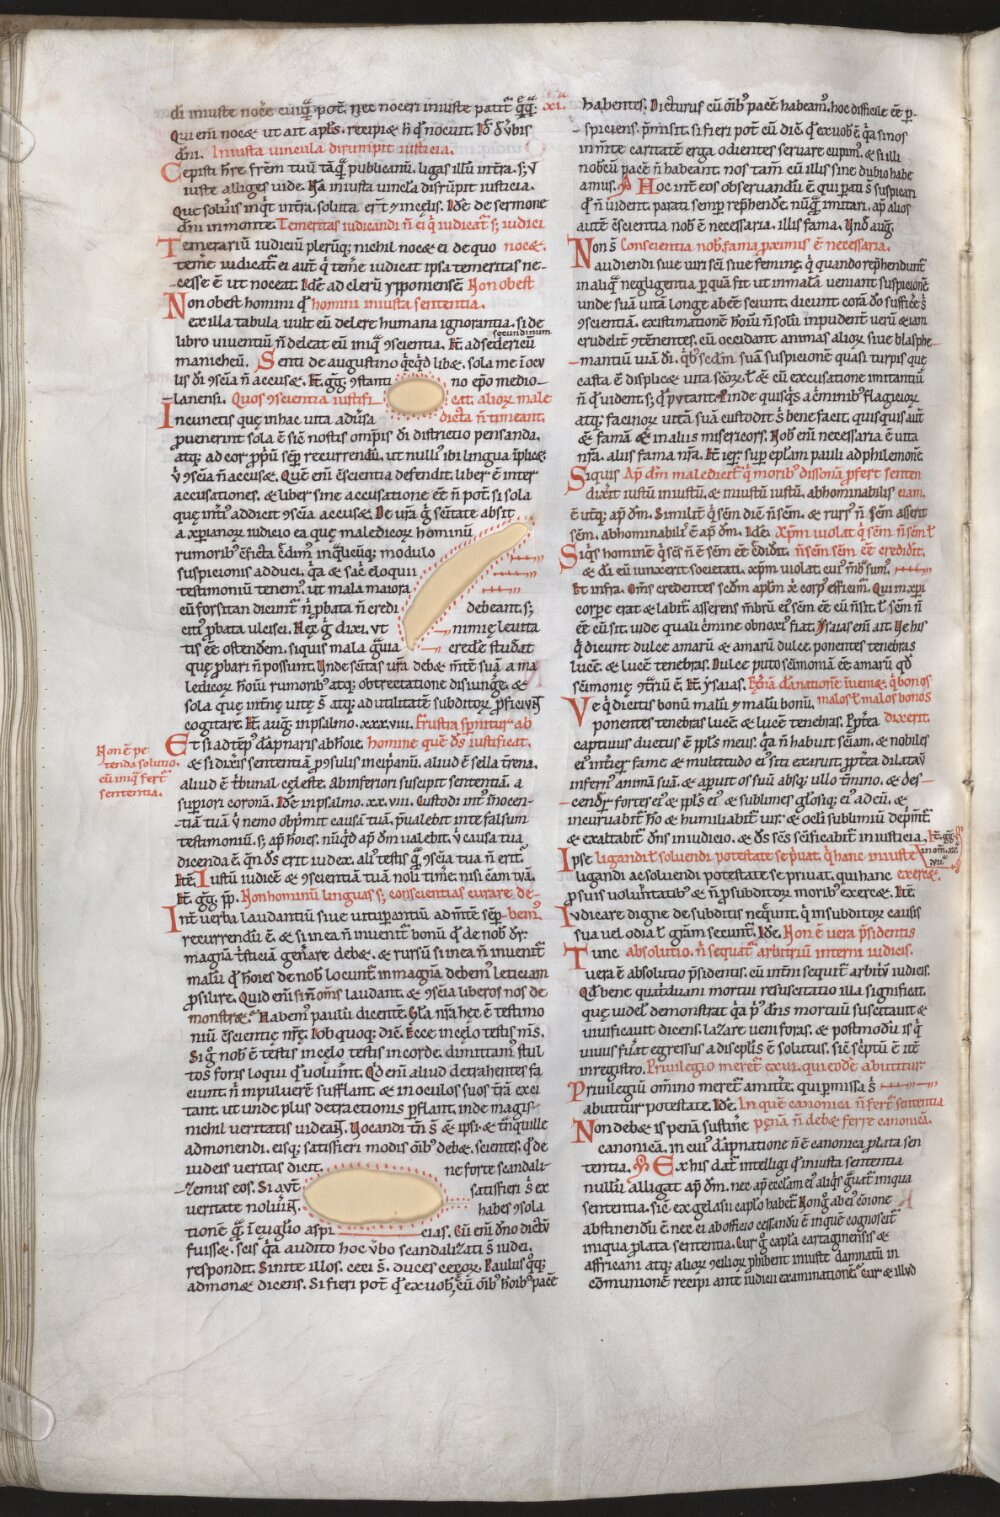 di iniuste nocēt cuiquā pot̄. nec noceri iniuste patit̄
Qui eni nocet ut ait apl̄s. recipiet h̄ qđ nocuit. Iđ đ ūbis
dn̄i. Iniusta uincula disrumpit iusticia.
Cepisti h̄re frēm tuū tāqā publicanū. ligas illū int̄ra. s; ū
iuste alliges uide. Nā iniusta uincl̄a disrūpit iusticia.
Que solūis inqt̄ int̄ra. soluta er̄t & in celis. Idē de sermone
dn̄i in monte. Temeritas iudicandi n̄ ei q̄ iudicat̄ s; iudici
Temerariū iudiciū plerūq; nichil nocet ei de quo nocet.
temē iudicat̄. ei aut q̄ temē iudicat ipsa temeritas ne-
cesse ē ut noceat. Idē ad clerū ypponiensē Non obest
Non obest homini q̄ homini iniusta sententia.
ex illa tabula uult eū delere humana ignorantia. si de
libro uiuentiū n̄ deleat eū iniq̄ 9scientia. Itē ad sedericū
secundinum
manicheū. Senti de augustino q̄cqđ libet. sola me ī ocu
lis đi 9sciā n̄ accuset. Itē. gg. 9stanti no epō medio-
lanensi. Quos 9scientia iustifi cat. alior male
Incunctis que in hac uita aduisa dicta n̄ timeant.
prouenerint sola ē siē nostis omp̄is đi districtio pensanda.
atq; ad cor pp̄ū sēp recurrendū. ut nullū ibi lingua īplicet
ū 9sciā n̄ accuset. Quē eni 9scientia defendit. liber ē inter
accusationes. & liber sine accusatione ēe n̄ pot̄. si sola
que int̄i addicit 9sciā accuset. De ur̄a ḡ sētate absit
a xp̄ianor iudicio ea que maledicor hominū
rumorib; ēficta credim in q̄licūq; modulo
suspicionis adduci. q̄a & sac̄ eloquii
testimoniū tenem. ut mala maiora
cū forsitan dicunt̄ n̄ pbata n̄ credi debeant. s;
citi pbata ulcisci. Nec ḡ dixi. ut nimie leuita
tis ēe ostendem. si quis mala ḡuia credē studeat
que pbari n̄ possunt. Unde scītas ur̄a debet m̄tē suā a ma
ledicor hoīū rumorib; atq; obtrectatione disiungē. &
sola que int̄ne uite s̄ atq; ad utilitatē subditor pficiūt
cogitare. Itē aug. in psalmo. xxx.viii. Frustra spernitur ab
Et si ad tēp dāpnaris ab hoīe. homine quē đs iustificat.
& si dixis sententiā psulis in cipanū. aliud ē sella t̄rena.
aliud ē t̄bunal celeste. Ab inferiori suscepit sententiā. a
supiori coronā. Idē in psalmo. xx.viii. Custodi int̄ innocen-
tiā tuā ū nemo obp̄mit causā tuā. pualebit inte falsum
testimoniū. s; ap̄ hoīes. nūqd ap̄ dm̄ ualebit. ū causa tua
dicenda ē. q̄n đs erit iudex. ali testis q̄ 9scia tua n̄ erit.
Itē. Iustū iudicē & 9scientiā tuā noli timē. nisi cām tuā.
Itē. gg. fp. Non hominū linguas s; conscientias curare de-
Int̄ uerba laudantiū siue uituperantiū ad m̄tē sēp bem.
recurrendū ē. & si in ea n̄ inuenit̄ bonū q̄ de nob đr.
magna t̄sticia gen̄are debet. & rursū si in ea n̄ inuenit̄
malū q̄ hoīes de nob locunt̄. in magnā debem leticiam
psilire. Quid eni si n̄ om̄s laudant. & 9scia liberos nos de
monstret. Habem paulū dicentē. Gl̄a nr̄a hec ē testimo
niū 9scientię nr̄ę. Iob quoq; diē. Ecce in celo testis m̄s.
Si ḡ nob ē testis in celo testis in corde. dimittam stul
tos foris loqui q̄ uoluint. Qđ eni aliud detrahentes fa
ciunt. n̄ in puluerē sufflant. & in oculos suos t̄rā exci
tant. ut unde plus detractionis pflant. inde magis
nichil ueritatis uideant. Vocandi tn̄ s̄ & ipsi. & t̄nquille
admonendi. eisq; satisfieri modis om̄ib debet. scientes. q̄ de
iudeis ueritas dicit. ne forte scandali-
zemus eos. Si aut satisfieri s̄ ex
ueritate noluint. habes 9sola
tionē q̄. I euglio aspi cias. Cū eni dn̄o dictū
fuisset. scis q̄a audito hoc ūbo scandalizati s̄ iudei.
respondit. Sinite illos. ceci s̄. duces cecor. Paulus qq;
admonet dicens. Si fieri pot̄ q̄ ex uob, cū om̄ib hoīb; pacē
Non ē pe
tenda solutio.
cū iniq̄ fert̄
sententia.
xi.
habentes. Dicturus cū om̄ib pacē habeam. hoc difficile ēe p-
spiciens. p̄misit. si fieri pot̄ eū diē. q̄ ex uob ē. q̄a si nos
in m̄te caritatē erga odientes seruare cupim. & si illi
nobcū pacē n̄ habeant. nos tam cū illis sine dubio habe
amus. Hoc int̄ eos obseruandū ē qui pati s̄ suspicari
q̄ n̄ uident. parati semp rep̄hendē. nūq̄ imitari. ap̄ alios
autē 9scientia nob ē necessaria. illis fama. Und aug.
Non s̄ Conscientia nob. fama p̄ximis ē necessaria.
audiendi siue uiri scī siue femine. q̄ quando rep̄hendunt̄
in aliq̄ negligentia p quā fit ut in malā ueniant suspicionē
unde suā uitā longe abeē sciunt. dicunt corā do sufficē s̄
9scientiā. existimationē hoīū n̄ solū inpudent̄ uerū etiam
crudelit̄ 9tēnentes. cū occidant animas alior siue blasphe-
mantiū uiā đi. qb; scđm suā suspicionē quasi turpis que
casta ē displicet uita scōr. l̄ & cū excusatione imitantiū
n̄ q̄ uident. s; q̄ putant. Proinde quisq̄s a crīminib flagicior
atq; facinor uitā suā custodit s̄ bene facit. quisquis aut̄
& famā & in alius misericors. Nob eni necessaria ē uita
nr̄a. aliis fama nr̄a. Itē. ier. sup epl̄am pauli ad philemonē.
Siquis Ap̄ dm̄ maledicit̄ q̄ morib; dissonā pfert senten
dixit iustū iniustū. & iniustū iustū. abhominabilis ciam.
ē utq; ap̄ dm̄. Similit̄ q̄ scm̄ diē n̄ scm̄. & rurs n̄ scm̄ asserit
scm̄. abhominabil ē ap̄ dm̄. Idē. Xp̄m uiolat q̄ scm̄ n̄ scm̄ l̄
Siqs hominē q̄ scs n̄ ē scm̄ ēe c̄didit. n̄ scm̄ scm̄ ēe crediderit.
& đi eū iunxerit societati. xp̄m uiolat. cui m̄b sum.
Et infra. Om̄s credentes scđm aplm̄ xi corp efficim. Qui in xp̄i
corpe erat & labit̄. asserens m̄brū ei scm̄ ēe cū n̄ sit. l̄ scm̄ n̄
ēe cū sit. uide quali crīmine obnoxi fiat. Ysaias eni ait. Ve his
q̄ dicunt dulce amarū & amarū dulce. ponentes tenebras
lucē. & lucē tenebras. Dulce puto scīmoniā ēe. amarū qđ
scīmonie 9t̄riū ē. Itē ysaias. Et̄nā dānationē inuenit. q̄ bonos
Ve q̄ dicitis bonū malū & malū bonū. malos l̄ malos bonos
ponentes tenebras lucē & lucē tenebras. Ppt̄ea dixerit.
captiuus ductus ē ppl̄s meus. q̄a n̄ habuit sciam. & nobiles
ei int̄ier fame & multitudo ei siti exaruit. ppt̄ea dilatau
infern animā suā. & aperuit os suū absq; ullo t̄mino. & des-
cendēr fortes ei & ppl̄s ei & sublimes gl̄osiq; ei ad eū. &
incuruabit̄ hō & humiliabit̄ uir. & oculi sublimiū dep̄m̄t̄
& exaltabit̄ dn̄s in iudicio. & đs scs scīficabit̄ in iusticia.
Itē. gg. in om. xi. vii.
Ipse ligandi l̄ soluendi potestate se p̄uat. q̄ hanc iniuste
ligandi ac soluendi potestate se priuat. qui hanc exercet.
p suis uoluntatib; & n̄ p subditor morib; exercet. Itē.
Iudicare digne de subditis neq̄unt. q̄ in subditor causis
sua uel odia l̄ grām secunt̄. Idē. Non ē uera p̄sidentis
Tunc absolutio. n̄ sequat̄ arbitriū interni iudicis.
uera ē absolutio p̄sidentis. cū int̄ni sequit̄ arbit̄ū iudicis.
Qđ bene quat̄duani mortui resuscitatio illa significat.
que uidel demonstrat q̄a p dn̄s mortuū suscitauit &
uiuificauit dicens. lazare ueni foras. & postmodū is q̄
uiuus fūat egressus a discip̄lis ē solutus. siē sc̄ptū ē itē
in registro. Priuilegiū meret̄ exui. qui eode abutitur.
Priuilegiū om̄ino meret̄ amittē. qui pmissa s̄
abutitur potestate. Idē. In quē canonica n̄ fert̄ sententia
Non debet is penā sustinē pena n̄ debet ferre canonicā.
canonicā. in cui dāpnatione n̄ ē canonica plata sen
tentia. Ex his dat̄ intelligi q̄ iniusta sententia
nullū alligat ap̄ dm̄. nec ap̄ ecclam ei aliqs gūat̄ iniqua
sententia. siē ex gelasii caplō habet̄. Non ḡ ab ei cōione
abstinendū ē. nec ei ab officio cessandū ē in quē cognoscit̄
iniqua plata sententia. Cur ḡ capla cartaginensis &
affricani atq; alior 9cilior phibent iniuste damnatū in
cōmunionē recipi ante iudicii examinationē. Cur & illud